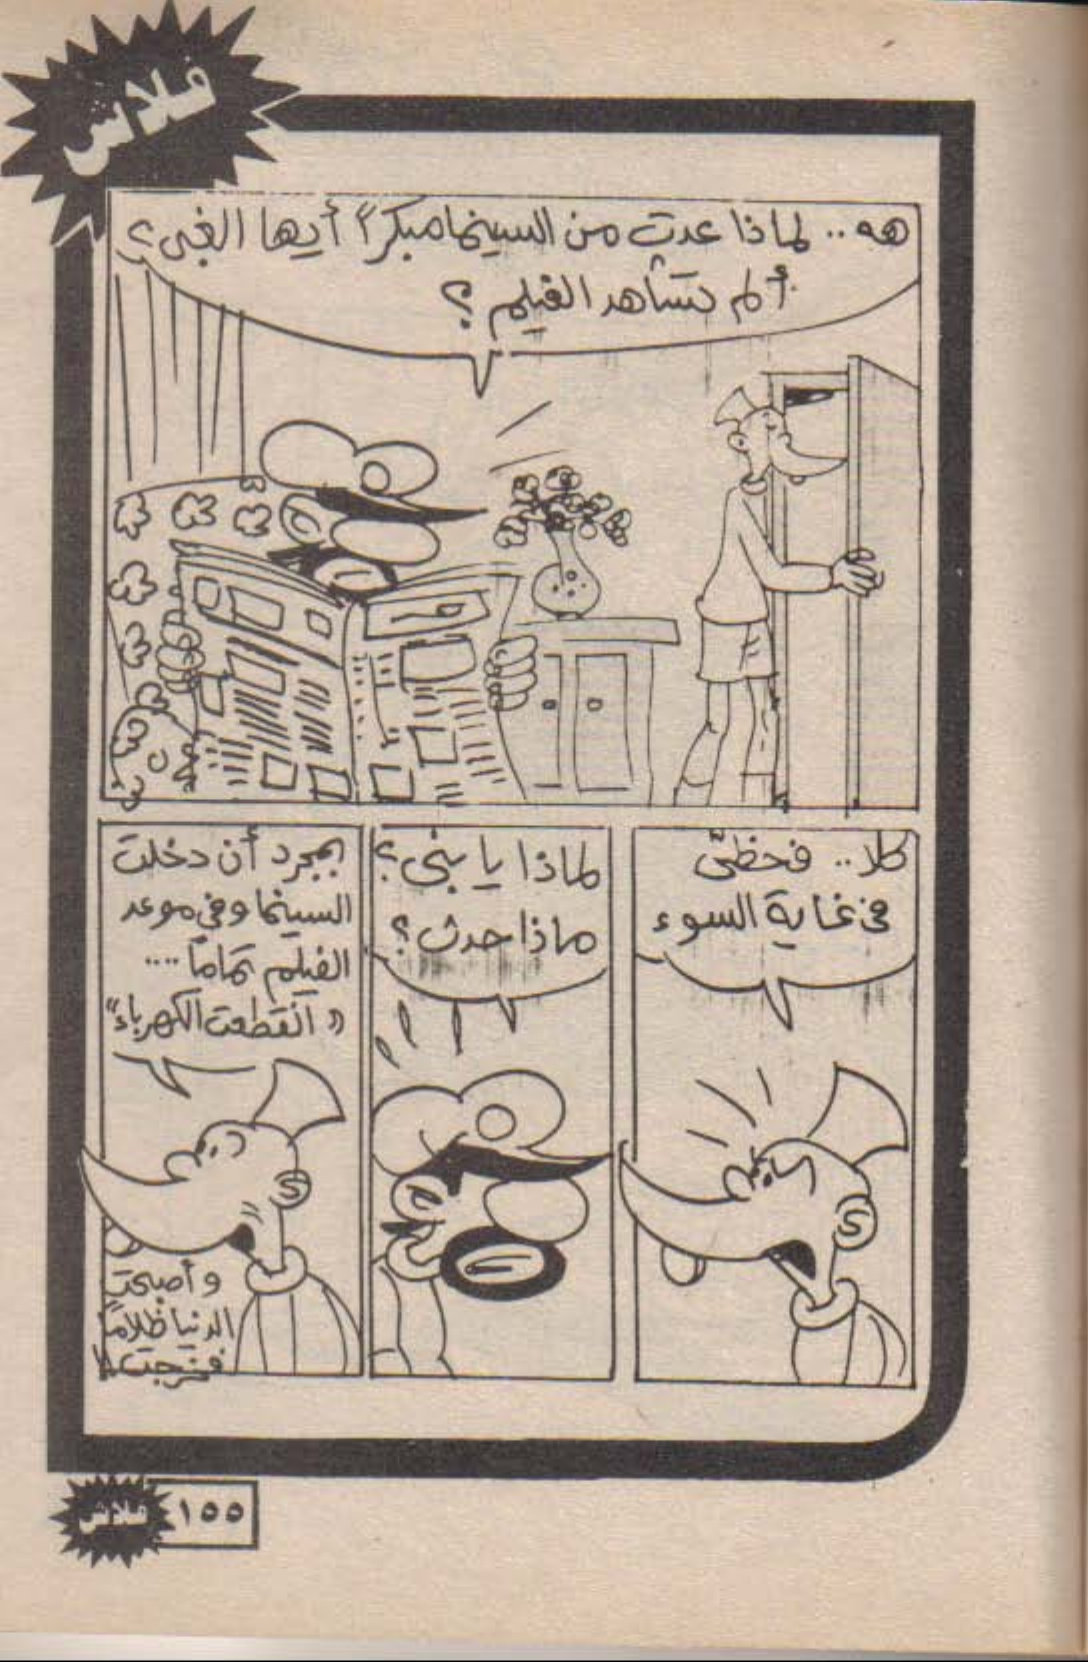 فلاش
هه.. لماذا عدت من السينما مبكراً أيها الغبى؟
ألم تشاهد الفيلم؟
كلا.. فحظى
فى غاية السوء
لماذا يا بنى؟
ماذا حدث؟
بمجرد أن دخلت
السينما وفى موعد
الفيلم تماماً....
"انقطعت الكهرباء"
وأصبحت
الدنيا ظلاماً
فخرجت!!
١٥٥ فلاش